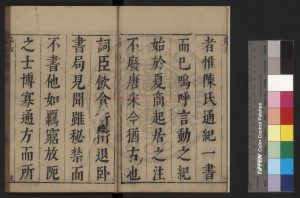 者惟陳氏通紀一書
而已嗚呼言動之紀
始於夏商起居之注
不廢唐宋今猶古也
詞臣飲食
退臥
書局見聞雖秘禁而
不書他如羈窮放阨
之士博寡通方而所